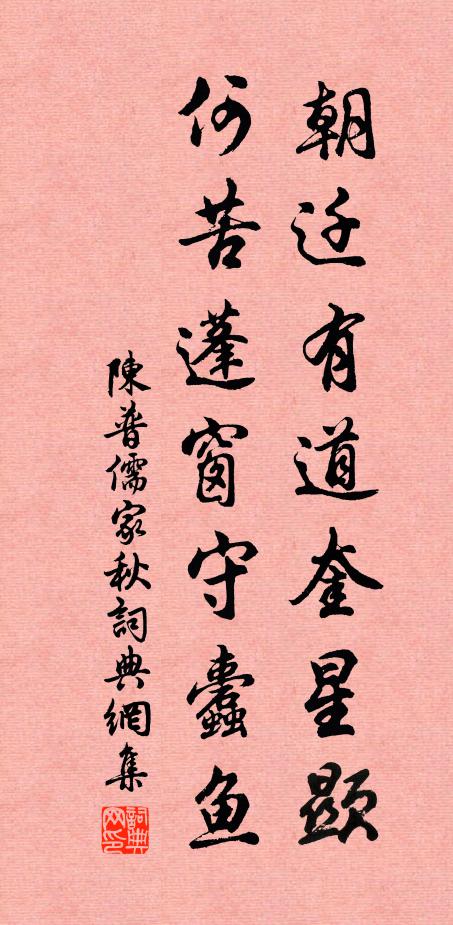 朝迁有道奎星顯
何苦蓬窗守蠹魚
陳普儒家秋詞典網集
詞典网印